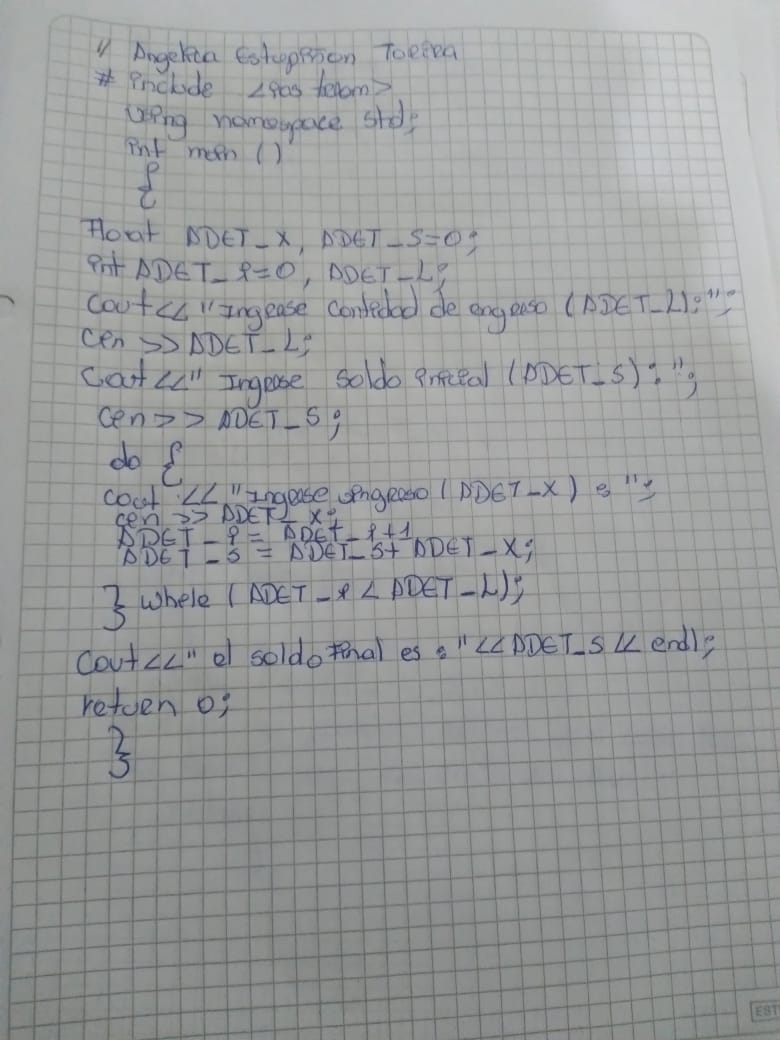 // Angelica Estupiñon Toreira
# include <ios tream>
using namespace std;
int main ()
{
Float ADET_X, ADET_S=0;
int ADET_i=0, ADET_L;
Cout<<"Ingease contedad de engreso (ADET_L):";
Cin >> ADET_L;
Cout <<" Ingease Soldo inicial (ADET_S):";
cin>> ADET_S;
do {
cout << "Ingease ingreso (ADET_X) : ";
cin >> ADET_X;
ADET_i = ADET_i+1
ADET_S = ADET_S+ ADET_X;
} while (ADET_i < ADET_L);
Cout<<" el soldo Final es : "<<ADET_S << endl;
retuen 0;
}
EST